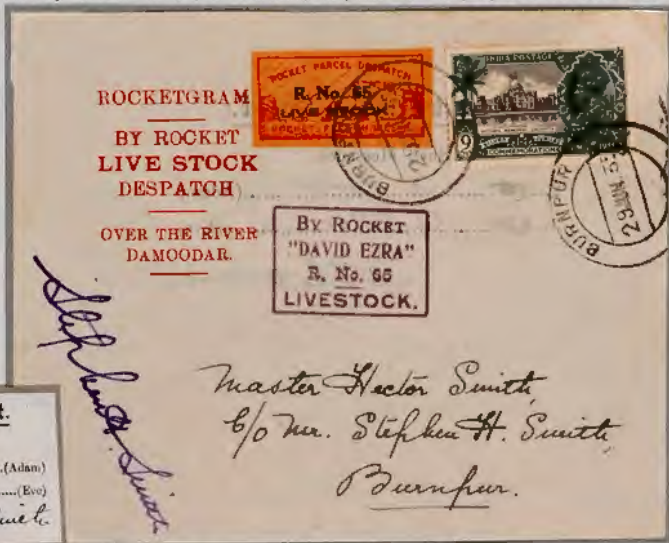 ROCKETGRAM
BY ROCKET
LIVE STOCK
DESPATCH
OVER THE RIVER
DAMOODAR.
ROCKET PARCEL DESPATCH
R. No. 65
LIVE STOCK
INDIA POSTAGE
9
BURNPUR
BURNPUR
29 JUN. 35
BY ROCKET
"DAVID EZRA"
R. No. 65
LIVESTOCK.
Stephen H. Smith
Master Hector Smith,
C/o Mr. Stephen H. Smith,
Burnpur.
(Adam)
(Eve)